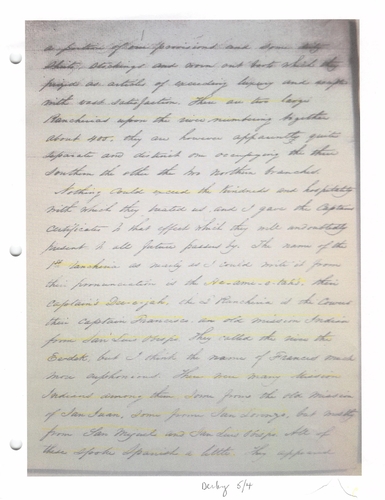 a portion of our provisions and some
shirts, stockings and worn out boots which they
prized as articles of exceeding luxury and
with vast satisfaction There are two large
Rancherias upon the river numbering together
about 400. they are however apparently quite
separate and distinct one occupying the
Southern the other the two northern branches.
Nothing could exceed the kindness and hospitality
with which they treated us and I gave the Captains
Certificates to that effect which they will undoubtedly
present to all future passers by. The name of the
1st rancheria as nearly as I could write it from
their pronunciation is the their
Captain's the 2d Rancheria is the
their Captain Francisco an old mission Indian
from San Luis Obispo They called the river the
but I think the name of Frances much
more euphonious. There were many Mission
Indians among them some from the old mission
of San Juan, some from San Lorenzo, but mostly
from San Miguel and San Luis Obispo All of
these spoke Spanish a little. They appeared
Derby 5/4